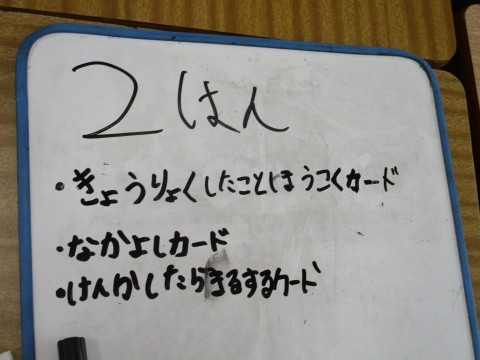 2はん
・きょうりょくしたことほうこくカード
・なかよしカード
・けんかしたらきるするカード